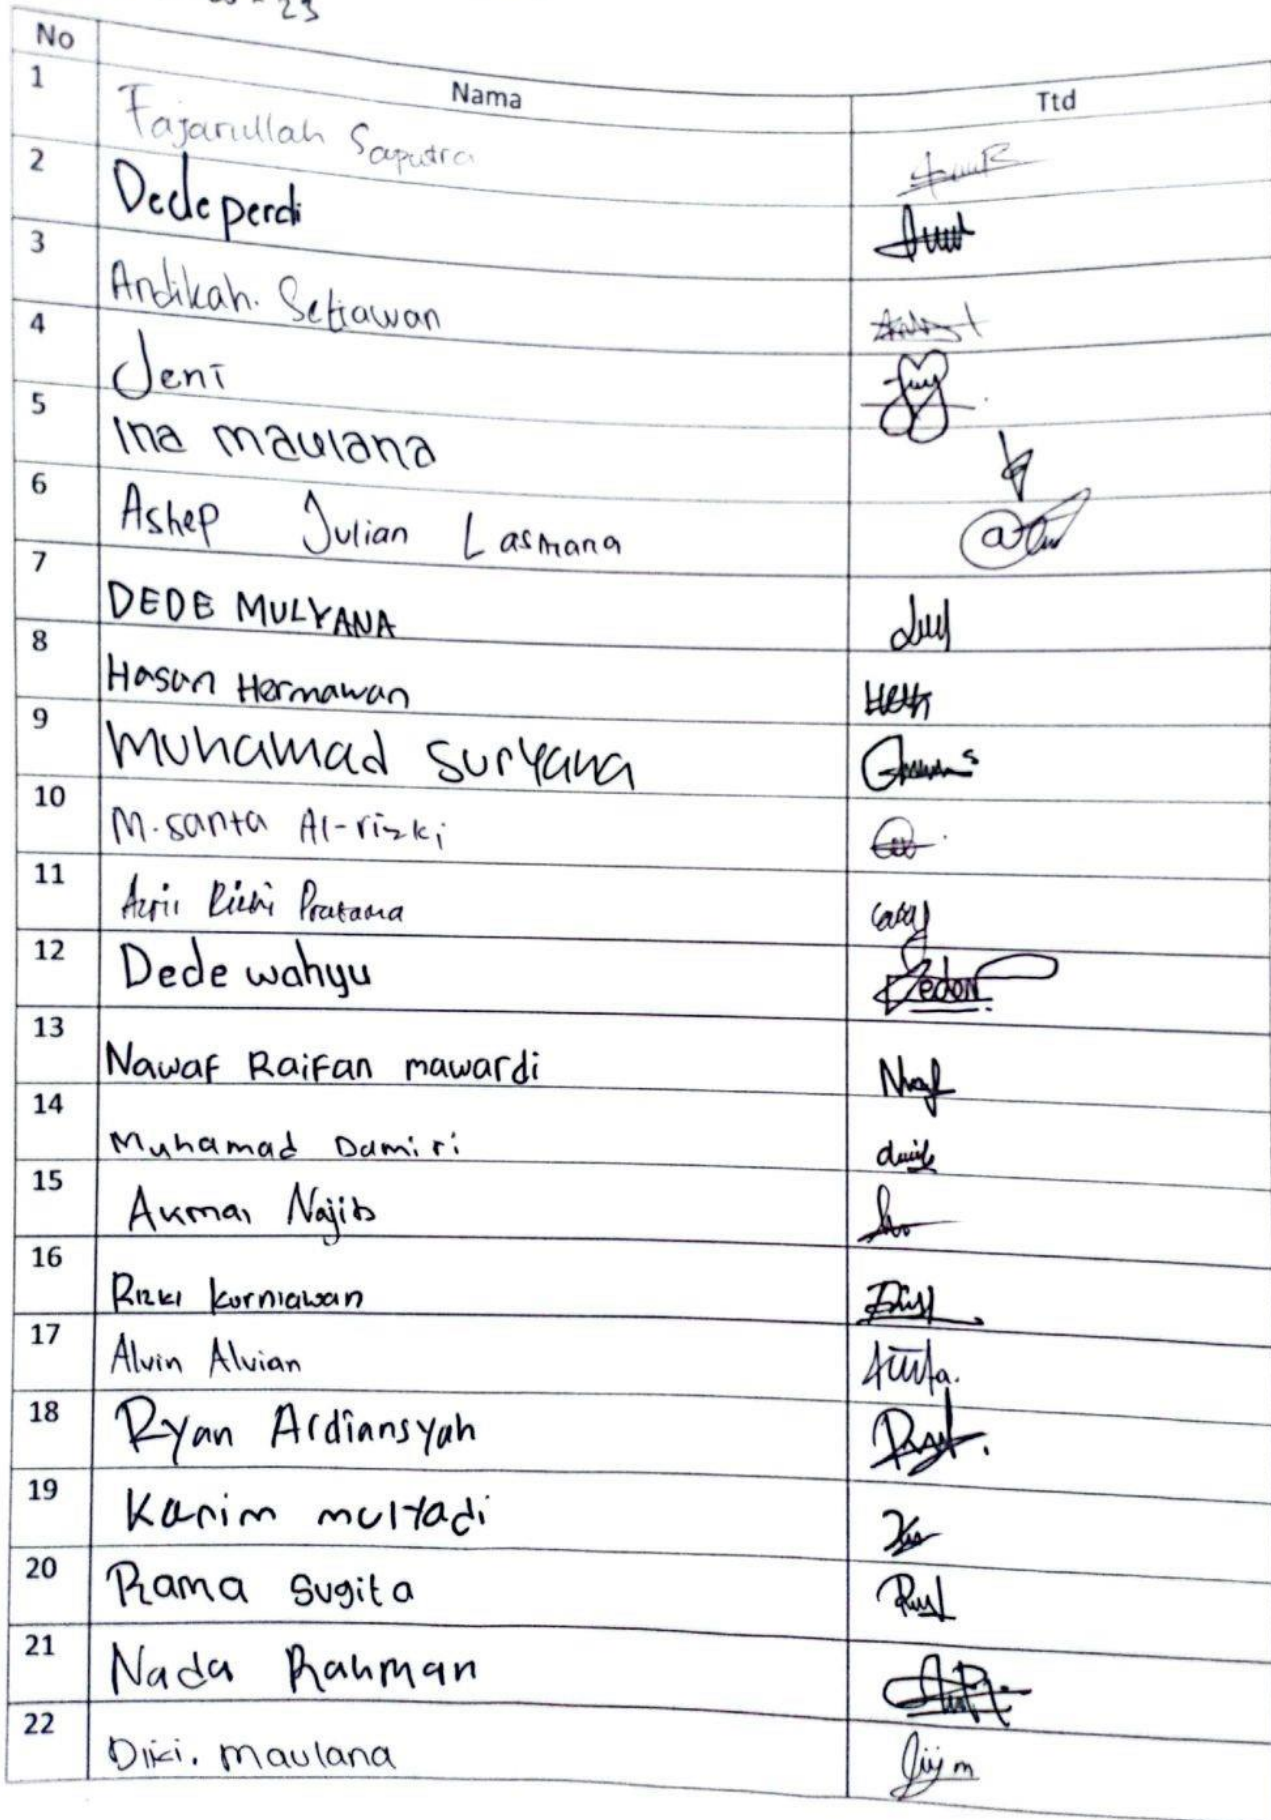 No Nama Ttd
1 Fajarullah Saputra
2 Dede perdi
3 Andikah. Setiawan
4 Jeni
5 Ina maulana
6 Ashep Julian Lasmana
7 DEDE MULYANA
8 Hasan Hermawan
9 Muhamad Suryana
10 M. santa Al-rizki
11 Pratama
12 Dede wahyu
13 Nawaf Raifan mawardi
14 Muhamad Damiri
15 Akmal Najib
16 Rizki kurniawan
17 Alvin Alvian
18 Ryan Ardiansyah
19 Karim mulyadi
20 Rama Sugita
21 Nada Rahman
22 Diki. maulana